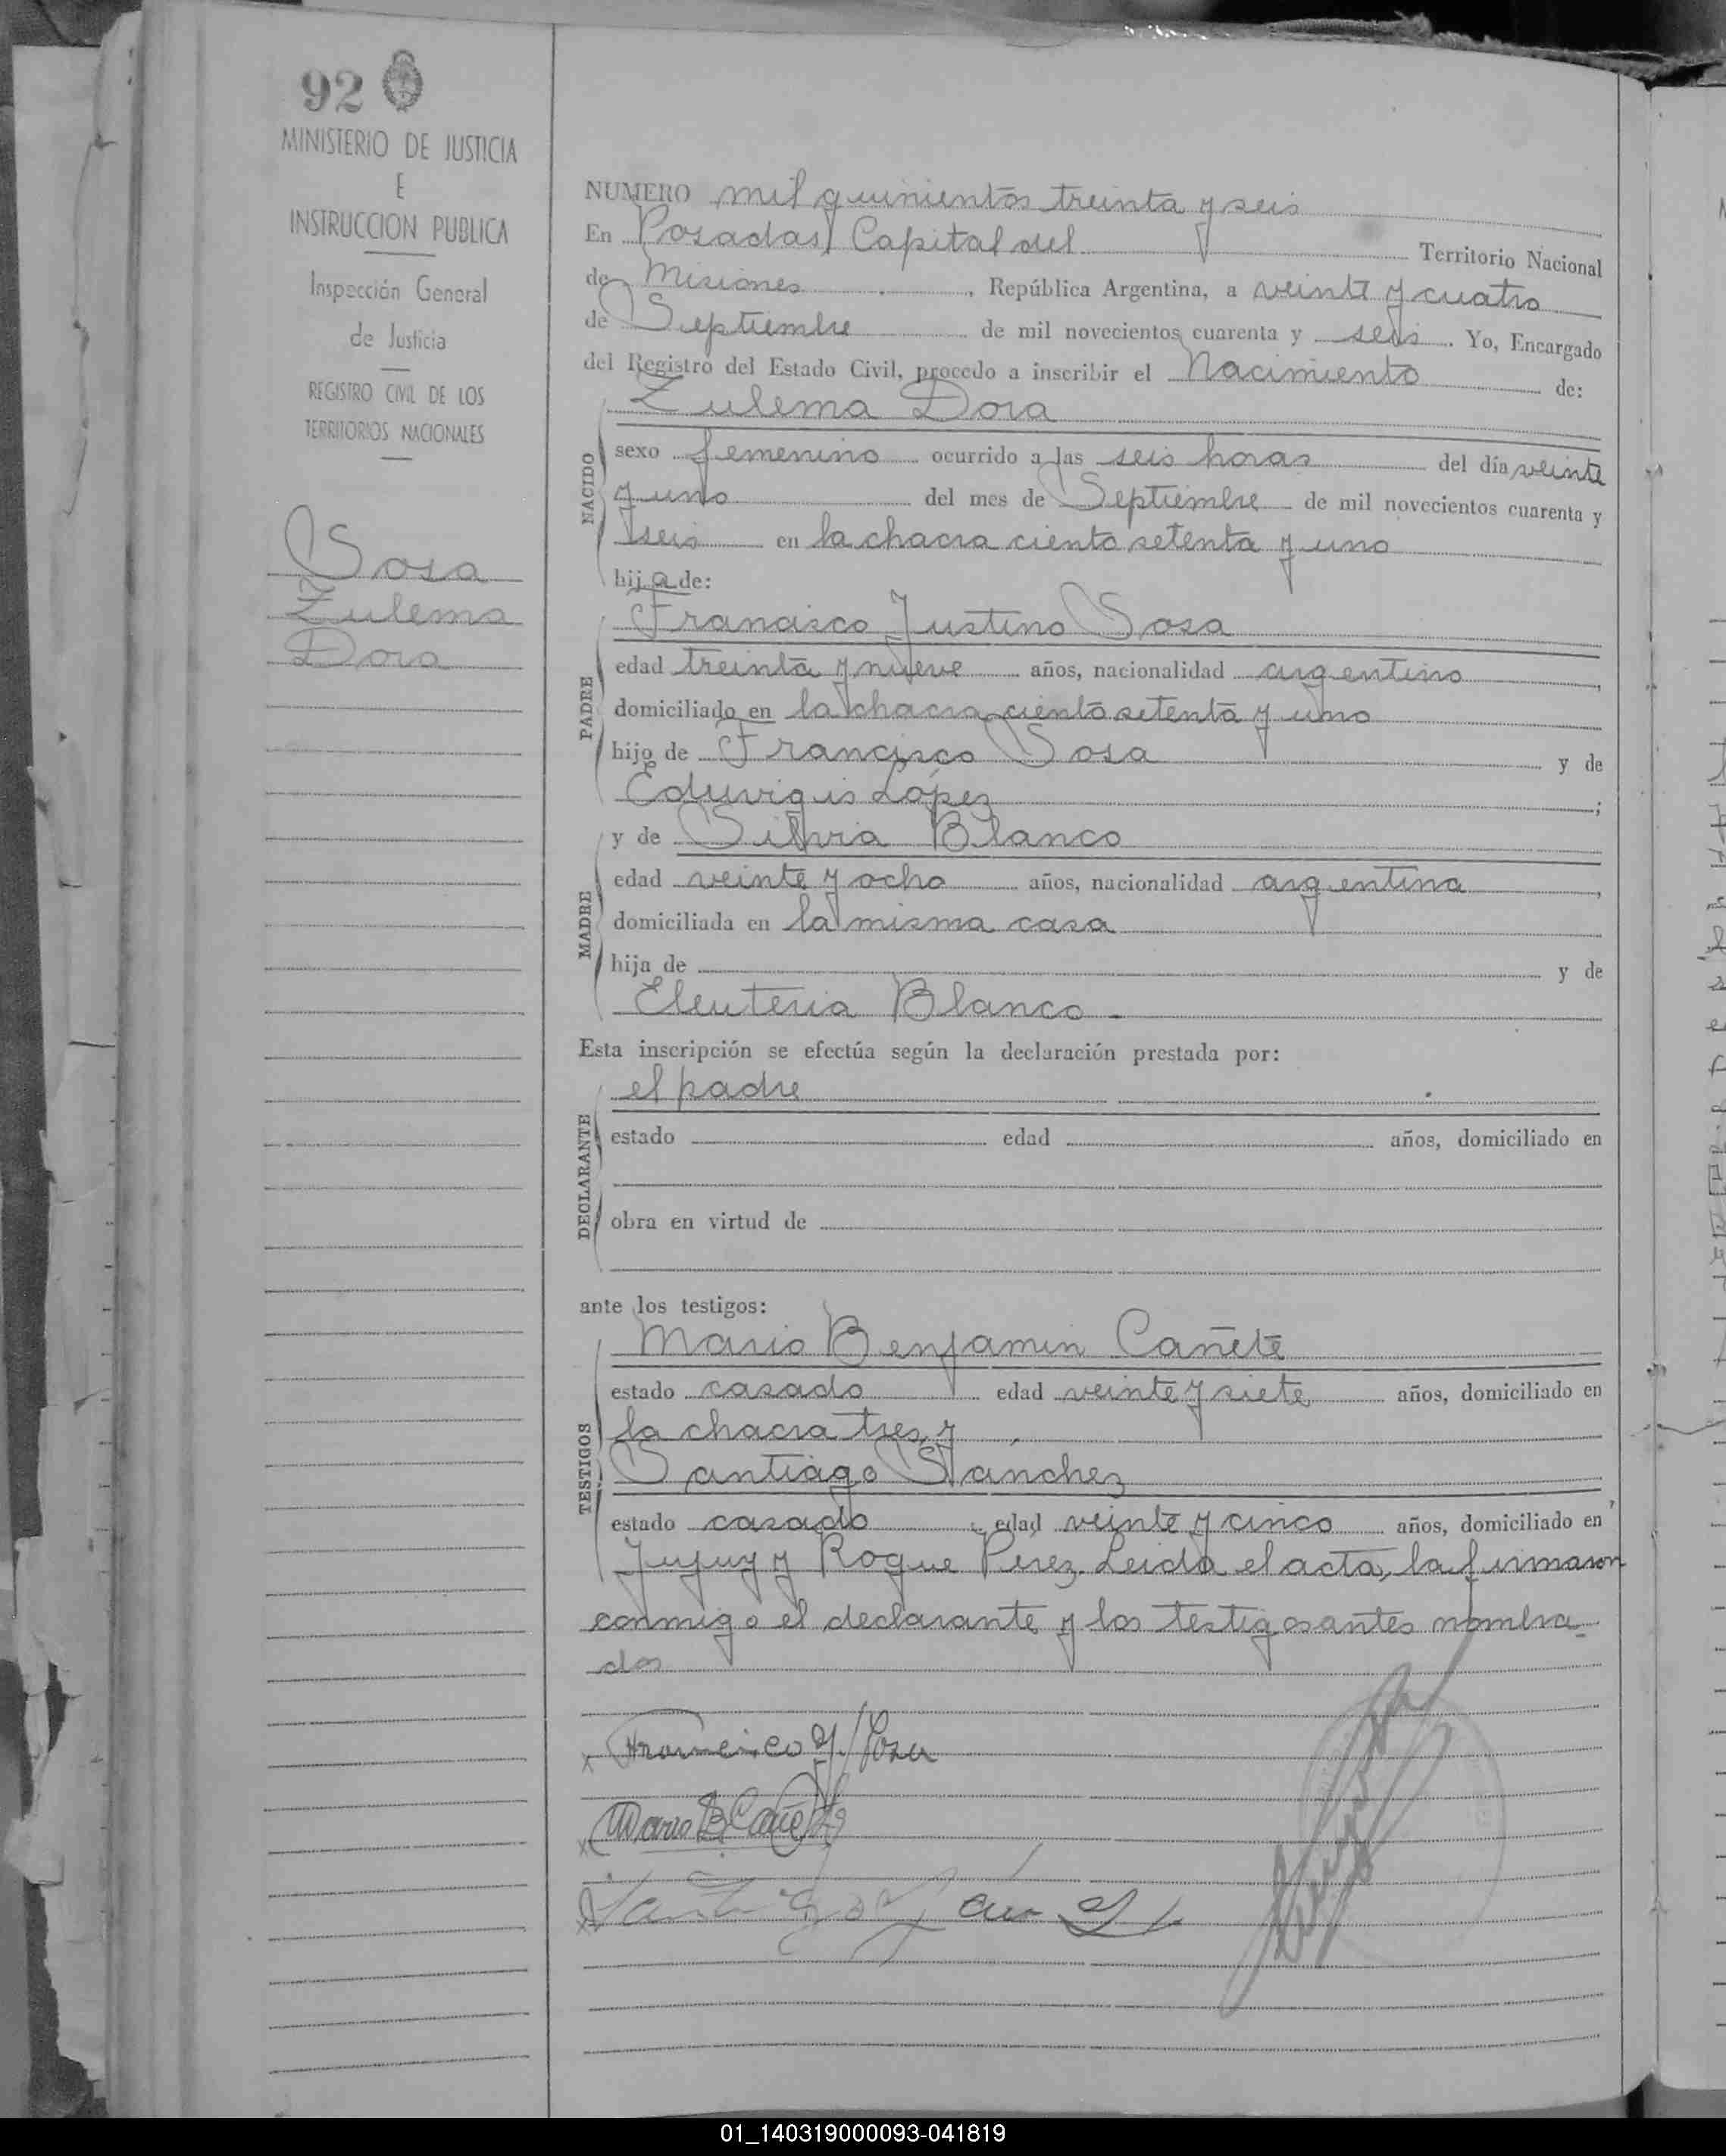 92
MINISTERIO DE JUSTICIA
E
INSTRUCCION PUBLICA
Inspección General
de Justicia
REGISTRO CIVIL DE LOS
TERRITORIOS NACIONALES
Sosa
Zulema
Dora
NUMERO mil quinientos treinta y seis
En Posadas, Capital del Territorio Nacional
de Misiones, República Argentina, a veinte y cuatro
de Septiembre de mil novecientos cuarenta y seis. Yo, Encargado
del Registro del Estado Civil, procedo a inscribir el Nacimiento de:
Zulema Dora
NACIDO
sexo femenino ocurrido a las seis horas del día veinte
y uno del mes de Septiembre de mil novecientos cuarenta y
seis en la chacra ciento setenta y uno
hija de:
Francisco Justino Sosa
PADRE
edad treinta y nueve años, nacionalidad argentino,
domiciliado en la chacra ciento setenta y uno
hijo de Francisco Sosa y de
Eduvigis López;
y de Silvia Blanco
MADRE
edad veinte y ocho años, nacionalidad argentina,
domiciliada en la misma casa
hija de y de
Eleuteria Blanco.
Esta inscripción se efectúa según la declaración prestada por:
el padre
DECLARANTE
estado edad años, domiciliado en
obra en virtud de
ante los testigos:
Mario Benjamin Cañete
TESTIGOS
estado casado edad veinte y siete años, domiciliado en
la chacra tres, y
Santiago Sanchez
estado casado edad veinte y cinco años, domiciliado en
Jujuy y Roque Perez. Leida el acta, la firmaron
conmigo el declarante y los testigos antes nombra-
dos
Francisco J. Sosa
Mario B Cañete
01_140319000093-041819